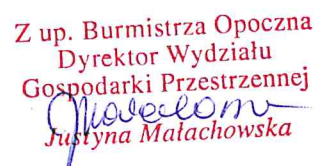 Z up. Burmistrza Opoczna
Dyrektor Wydziału
Gospodarki Przestrzennej
Justyna Małachowska